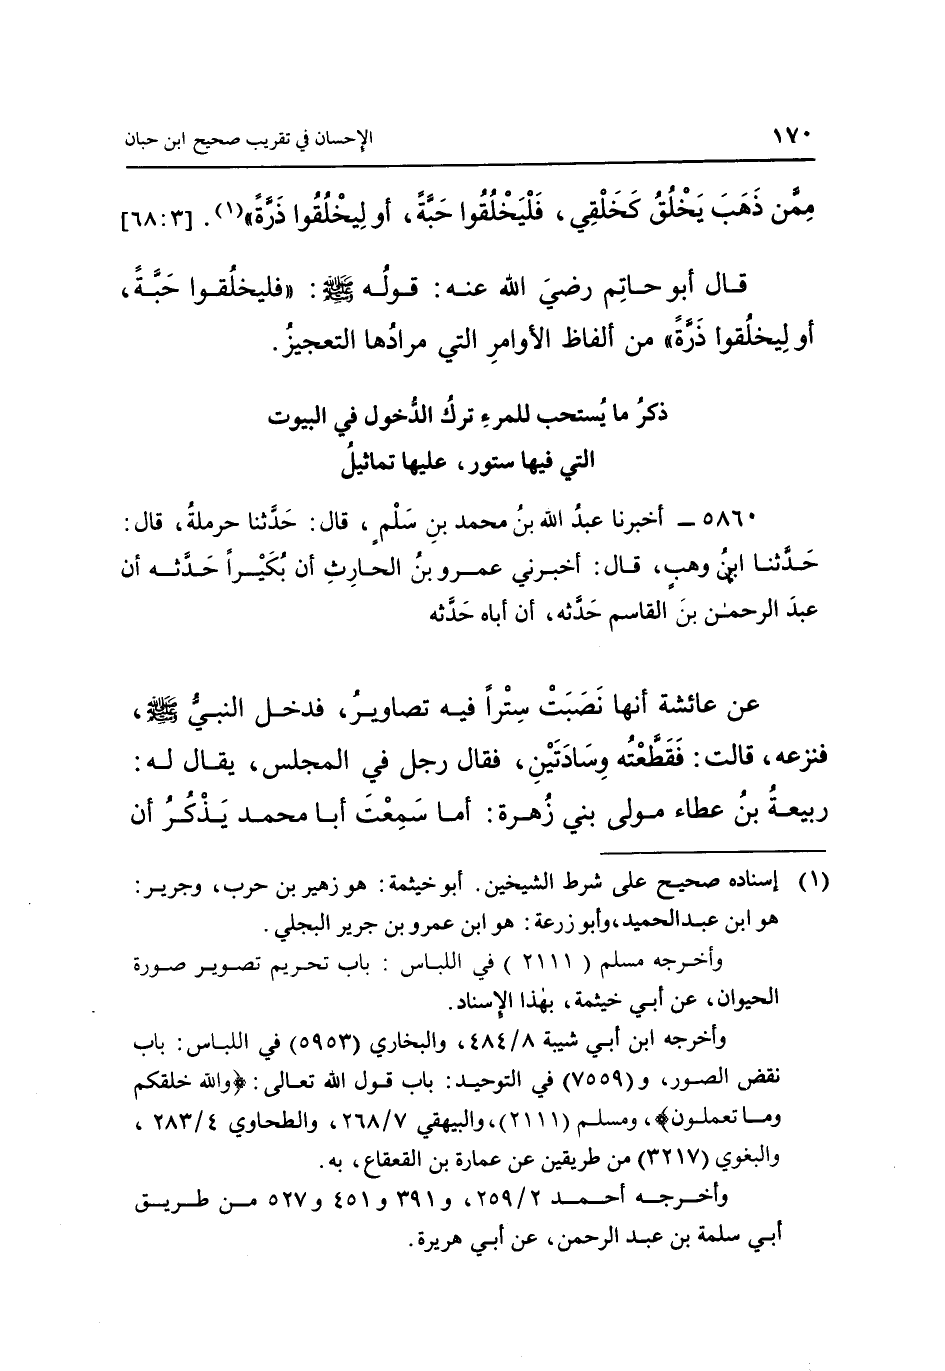 ١٧٠ الإحسان في تقريب صحيح ابن حبان
مِمَّن ذَهَبَ يَخْلُقُ كَخَلْقِي، فَلْيَخْلُقُوا حَبَّةً، أو لِيخْلُقُوا ذَرَّةً»(١). [٦٨:٣]
قـال أبو حـاتِم رضيَ الله عنـه: قـولُـه ﷺ: «فليخلُقـوا حَبَّـةً،
أو لِيخلُقوا ذَرَّةً» من ألفاظ الأوامرِ التي مرادُها التعجيزُ.
ذكرُ ما يُستحب للمرءِ تركُ الدُّخول في البيوت
التي فيها ستور، عليها تماثيلُ
٥٨٦٠ ــ أخبرنا عبدُ الله بنُ محمد بنِ سَلْمٍ، قال: حَدَّثنا حرملةُ، قال:
حَـدَّثنـا ابنُ وهبٍ، قـال: أخبـرني عمـرو بنُ الحـارثِ أن بُكَيْـراً حَـدَّثـه أن
عبدَ الرحمـٰن بنَ القاسم حَدَّثه، أن أباه حَدَّثه
عن عائشة أنها نَصَبَتْ سِتْراً فيـه تصاويـرُ، فدخـل النبيُّ ﷺ،
فنزعه، قالت: فَقَطَّعْتُه وِسَادَتَيْنِ، فقال رجل في المجلس، يقـال لـه:
ربيعـةُ بنُ عطاء مـولى بني زُهـرة: أمـا سَمِعْتَ أبـا محمـد يَـذْكُـرُ أن
(١) إسناده صحيح على شرط الشيخين. أبو خيثمة: هو زهير بن حرب، وجرير:
هو ابن عبـدالحميد، وأبو زرعة: هو ابن عمرو بن جرير البجلي.
وأخـرجه مسلم ( ٢١١١ ) في اللبـاس : باب تحـريم تصـويـر صـورة
الحيوان، عن أبـي خيثمة، بهٰذا الإسناد.
وأخرجه ابن أبـي شيبة ٤٨٤/٨، والبخاري (٥٩٥٣) في اللبـاس: باب
نقض الصور، و (٧٥٥٩) في التوحيد: باب قـول الله تعـالى: ﴿والله خلقكم
ومـا تعملـون﴾، ومسلـم (٢١١١)، والبيهقي ٢٦٨/٧، والطحاوي ٢٨٣/٤ ،
والبغوي (٣٢١٧) من طريقين عن عمارة بن القعقاع، به.
وأخـرجـه أحـمـد ٢٥٩/٢، و٣٩١ و٤٥١ و٥٢٧ مـن طـريـق
أبـي سلمة بن عبـد الرحمن، عن أبـي هريرة.